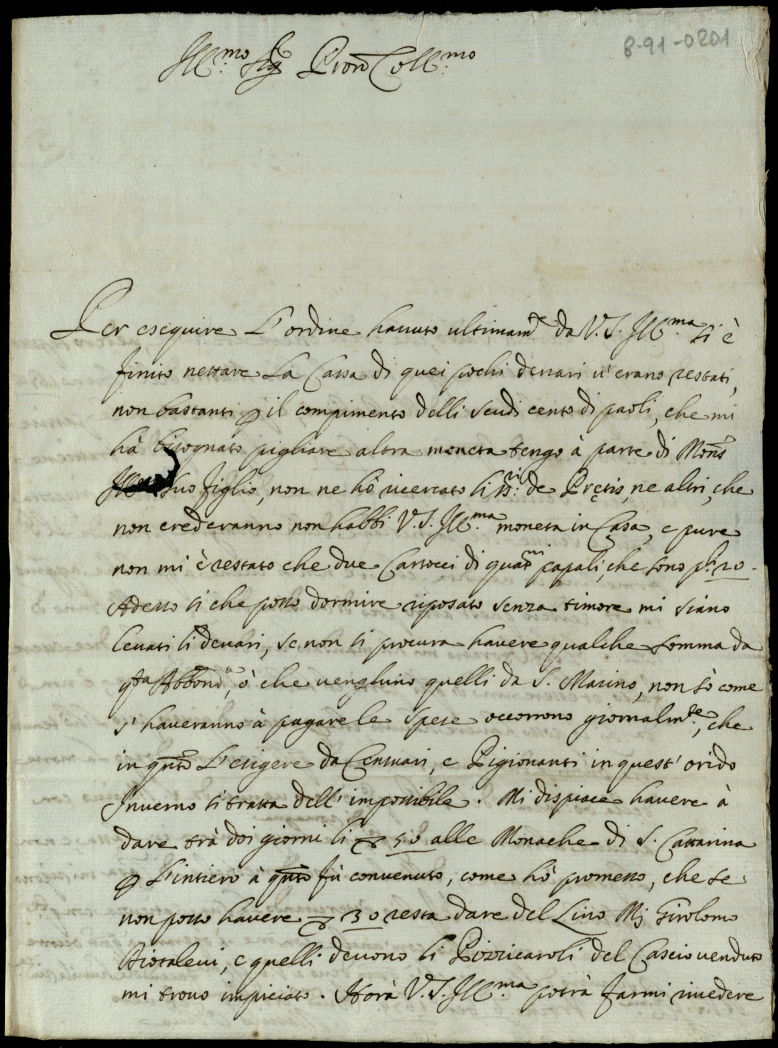 8-91-0201
Ill.mo Sig.r Pron Coll.mo
Per esequire l'ordine havuto ultimam.te da V.S. Ill.ma si è
finito nettare la Cassa di quei pochi denari v'erano restati,
non bastanti p il compimento delli scudi cento di paoli, che mi
hà bisognato pigliare altra moneta tengo à parte di Mons.r
suo figlio, non ne hò ricercato li de Pretis, ne altri, che
non crederanno non habbi V.S. Ill.ma moneta in Casa, e pure
non mi è restato che due Cartocci di quatni papali, che sono 20.
Adesso si che posso dormire riposato senza timore mi siano
levati li denari, se non si procura havere qualche somma da
q.ta Abbond.a, ò che venghino quelli da S. Marino, non sò come
s'haveranno à pagare le spese occorrono giornalm.te, che
in qnto l'esigere da Censuari, e Pigionanti in quest'orido
Inverno si tratta dell'impossibile. Mi dispiace havere à
dare trà doi giorni li 50 alle Monache di S. Cattarina
p l'intiero à qnto fù convenuto, come hò promesso, che se
non posso havere 30 resta dare del Lino Ms Girolomo
e quelli devono li Pizzicaroli del Cascio venduto
mi trovo impiciato. Horà V.S. Ill.ma potrà farmi rivedere